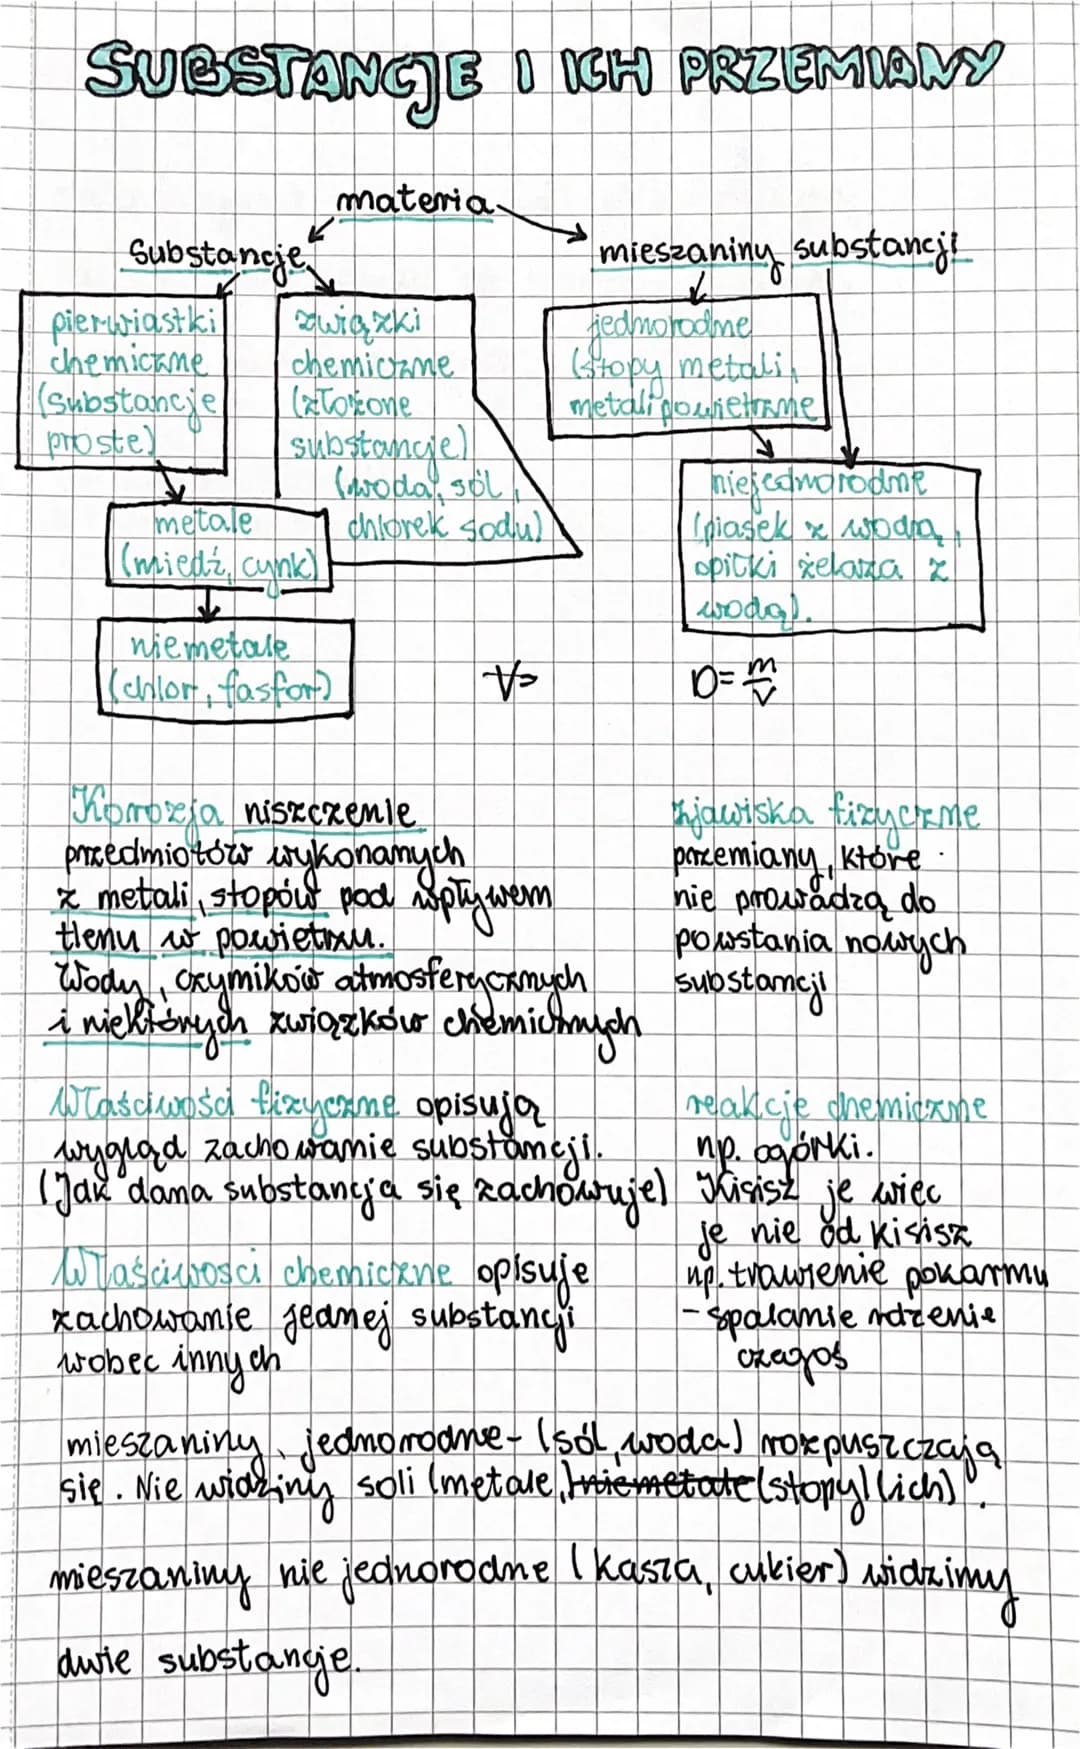 SUBSTANCJE I ICH PRZEMIANY
materia
Substancje
mieszaniny substancji
pierwiastki
chemiczne
(substancje
proste)
związki
chemiczne
(złożone
substancje)
(woda, sól,
chlorek sodu)
metale
(miedź, cynk)
niemetale
(chlor, fasfor)
jednorodne
(stopy metali,
metali powietrzne
niejednorodne
(piasek z wodą,
opiłki żelaza z
wodą).
V=
D=m/V
Korozja niszczenie
przedmiotów wykonanych
z metali, stopów pod wpływem
tlenu w powietrzu.
Wody, czymików atmosferycznych
i niektórych związków chemicznych
zjawiska fizyczne
przemiany, które
nie prowadzą do
powstania nowych
substancji
Właściwości fizyczne opisują
wygląd zachowanie substancji.
(Jak dana substancja się zachowuje)
reakcje chemiczne
np. ogórki.
Kisisz je więc
je nie od kisisz
np. trawienie pokarmu
- spalanie rdzenie
czegoś
Właściwosci chemiczne opisuje
zachowanie jednej substancji
wobec innych
mieszaniny jednorodne - (sól, woda) rozpuszczają
się. Nie widziny soli (metale, niemetale (stopy) (ich).
mieszaniny nie jednorodne (kasza, cukier) widzimy
dwie substancje.